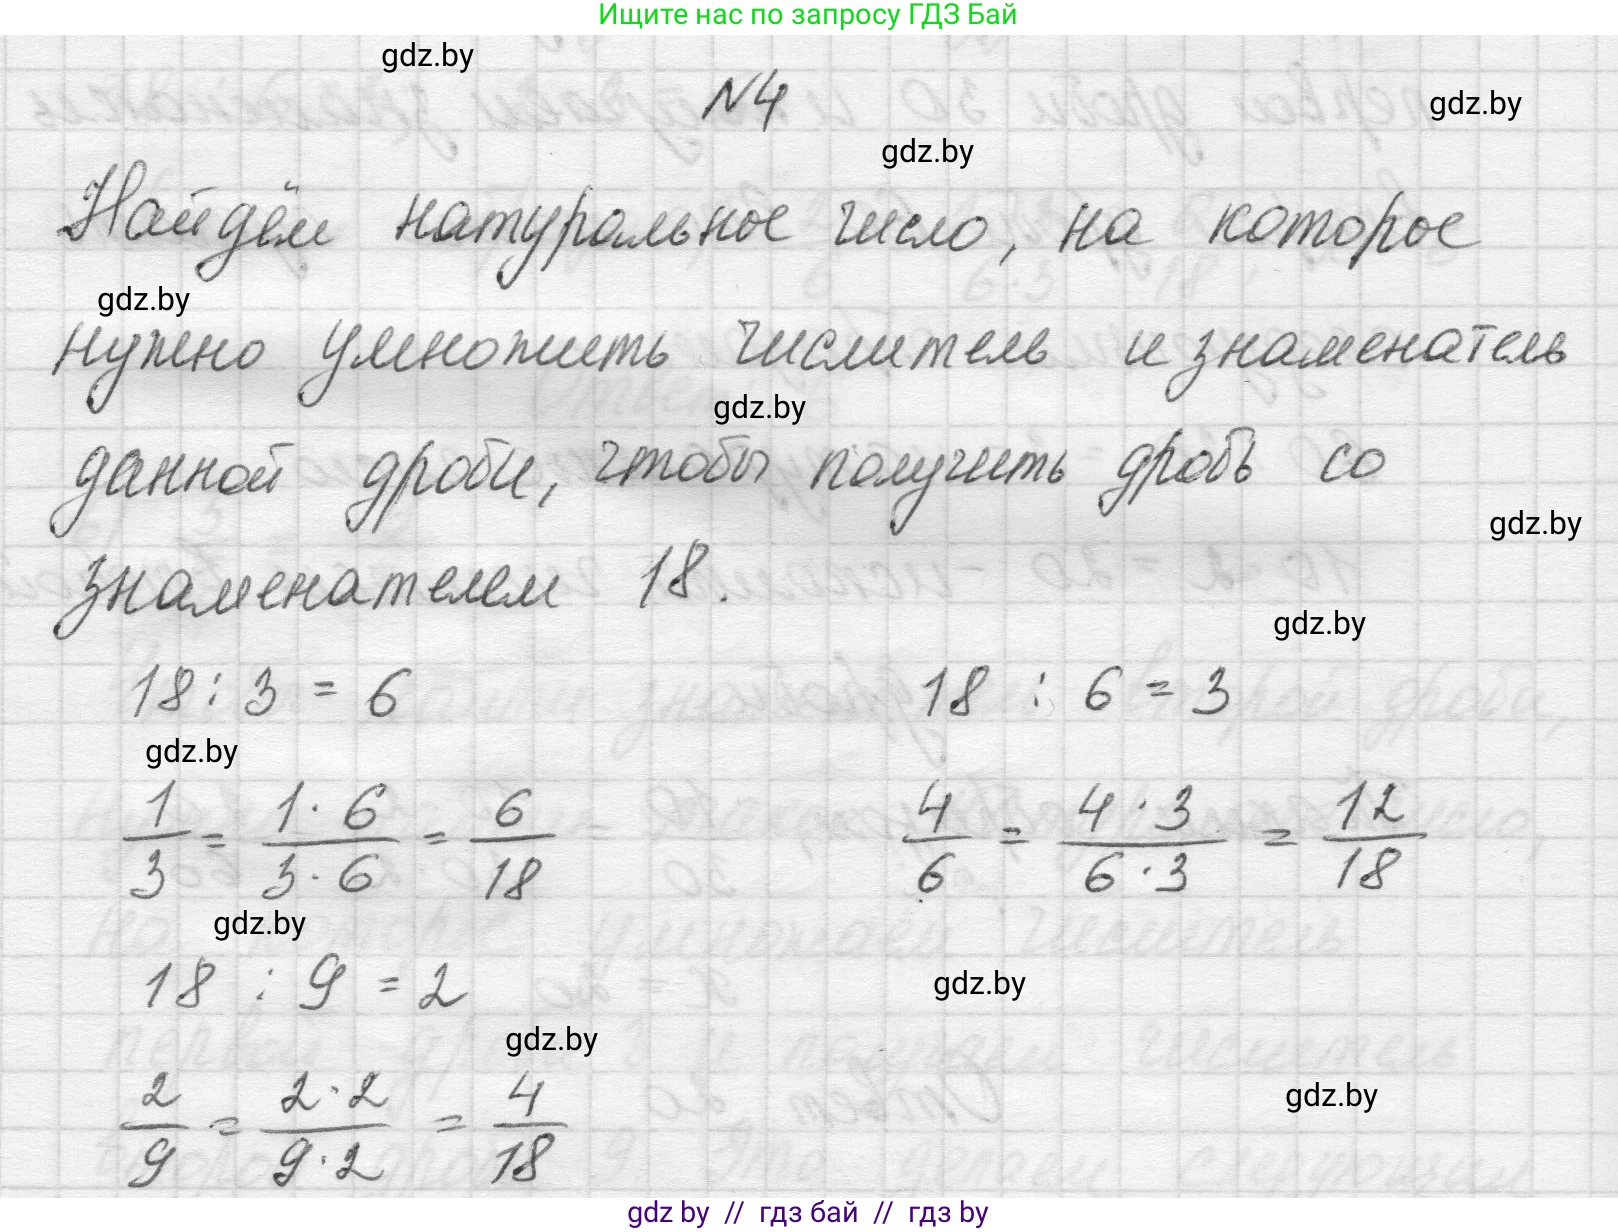 Ищите нас по запросу ГДЗ Бай
gdz.by
N4
gdz.by
gdz.by
Найдём натуральное число, на которое
gdz.by
нужно умножить числитель и знаменатель
gdz.by
данной дроби, чтобы получить дробь со
gdz.by
знаменателем 18.
gdz.by
18 : 3 = 6
18 : 6 = 3
gdz.by
1/3 = 1·6/3·6 = 6/18
4/6 = 4·3/6·3 = 12/18
gdz.by
18 : 9 = 2
gdz.by
gdz.by
2/9 = 2·2/9·2 = 4/18
gdz.by
gdz by // гдз бай // гдз by